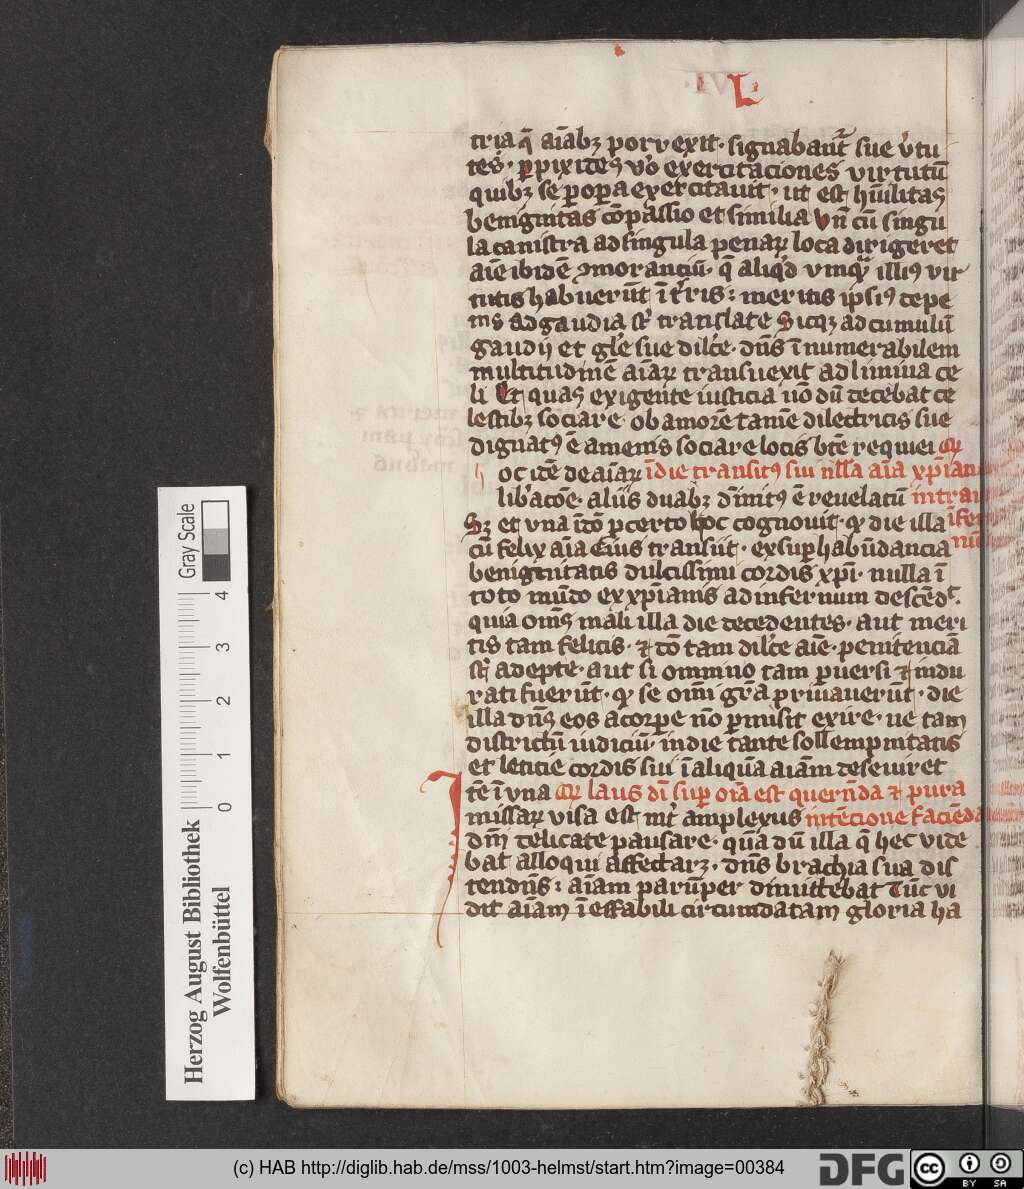 L
tria q̄ aīabꝫ porrexit· signabant᷑ sue v̓tu
tes· ꝑ pixides v̓o exercitaciones virtutū
quibꝫ se ꝓ ꝓpͣ exercitauit· ut est hūilitas
benignitas cōpassio et similia Vn̄ cū singu
la canistra ad singula penaꝝ loca dirigeret
aīe ibidē ꝯmoranciū· q̄ aliqd̓ vmqͣ illiꝰ vir
tutis habuerūt ī t̓ris : meritis ipsiꝰ
ad gaudia sꝉ translate Sicqꝫ ad cumulū
gaudij et gl̄e sue dilc̄e· dn̄s īnumerabilem
multitudinē aīaꝝ transuexit ad limina ce
li Et quas exigente iusticia nō dū decebat ce
lestibꝫ sociare· ob amorē tamē dilectricis sue
dignatꝰ ē amenis sociare locis btē requiei
oc itē de aīaꝝ ī die transitꝰ sui nll̄a aīa xp̄ian
lib̓acōe· aliis duabꝫ diuītꝰ ē reuelatū intra
Sꝫ et vna itō ꝓ certo hoc cognouit· qͥ die illa īfer
cū felix aīa eius transiit· ex suꝑhabūdancia nū
benignitatis dulcissimi cordis xp̄i· nulla ī
toto mūdo ex xp̄ianis ad infernum descēd᷑·
quia om̄s mali illa die decedentes· aut meri
tis tam felicis· ⁊ dō tam dilc̄e aīe· penitenciā
sꝉ adepte· aut si omnino tam ꝑuersi ⁊ indu
rati fuerūt· qͥ se om̄i gr̄a priuauerūt· die
illa dn̄s eos a corꝑe nō ꝑmisit exire· ne tam
districtū iudiciū· in die tante sollempnitatis
et leticie cordis sui ī aliquā aīam deseuiret
Itē ī vna laus di sup oīa est querēda ⁊ pura
missaꝝ visa est mr̓ amplexus intēcione faciēda
dn̄i delicate pausare· quā dū illa q̄ hec vide
bat alloqui affectarꝫ· dn̄s brachia sua dis
tendēs : aīam parūper dimittebat Tūc vi
dit aīam ineffabili circumdatam gloria ha
Gray Scale
0 1 2 3 4
Herzog August Bibliothek
Wolfenbüttel
(c) HAB http://diglib.hab.de/mss/1003-helmst/start.htm?image=00384
DFG
cc BY SA